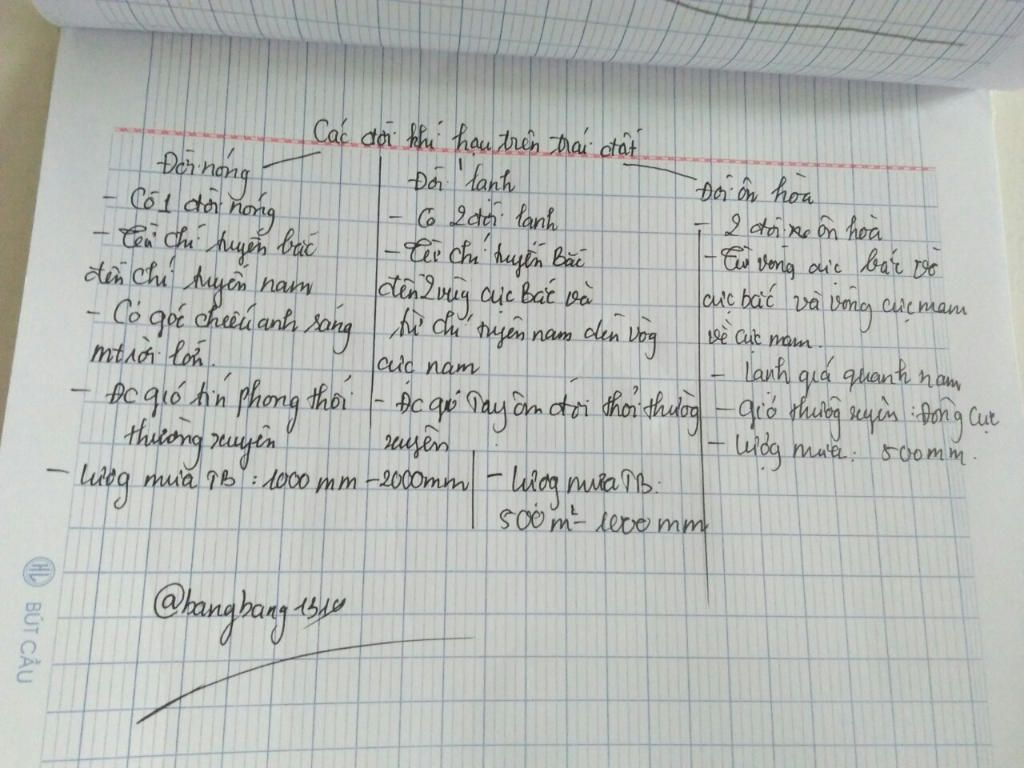 Các đới khí hạu trên trái đất
Đới nóng
- Có 1 đới nóng
- Từ chí tuyến bắc
đến chí tuyến nam
- Có góc chiếu anh sáng
mtrời lớn.
- Đc gió tín phong thổi
thường xuyên
- Lượg mưa TB : 1000 mm - 2000mm
Đới lạnh
- Có 2 đới lạnh
- Từ chí tuyến Bắc
đến 2 vùg cực Bắc và
từ chí tuyến nam đến vòg
cực nam
- Đc gió Tay ôm đới thổi thườg
xuyên
- Lượg mưa TB:
500 m² - 1000 mm
Đới ôn hòa
- 2 đới ôn hòa
- Từ vòng cực bắc về
cực bắc và vòng cực mam
về cực mam.
- lạnh giá quanh nam
- gió thườg xuyên : Đông Cực
- Lượg mưa: 500mm.
@bangbang1310
HL BÚT CẦU